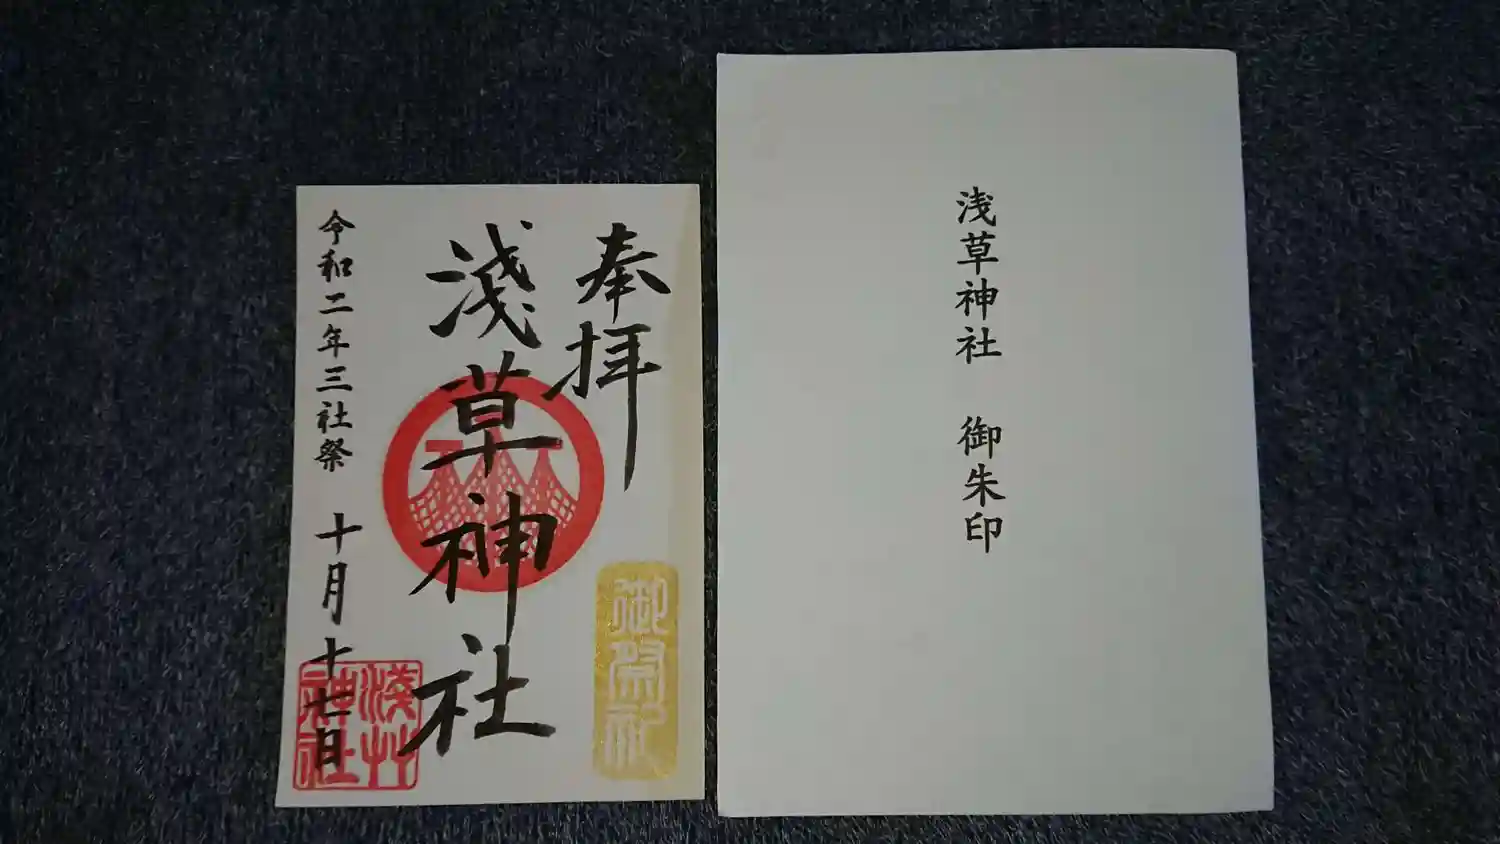 奉拝
淺草神社
令和二年三社祭 十月十七日
御祭礼
淺草
神社
浅草神社 御朱印